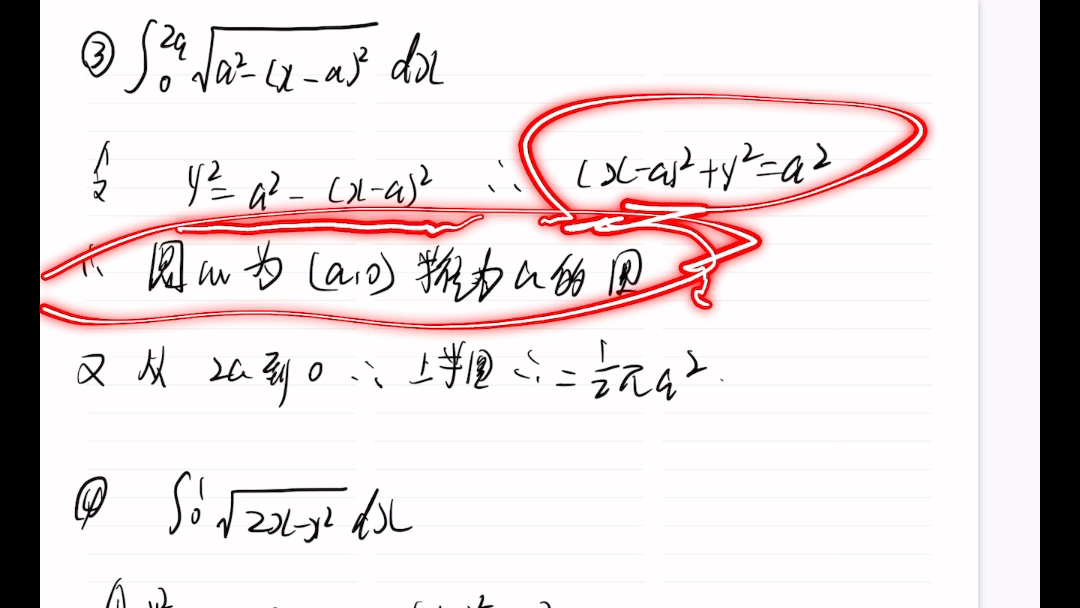 ③ ∫₀²ᵃ √(a²-(x-a)²) dx
y²=a²-(x-a)² ∴ (x-a)²+y²=a²
∴ 圆心为(a,0)半径为a的圆
又 从 2a到0 ∴ 上半圆 ∴ =½πa².
④ ∫₀¹ √(2x-x²) dx